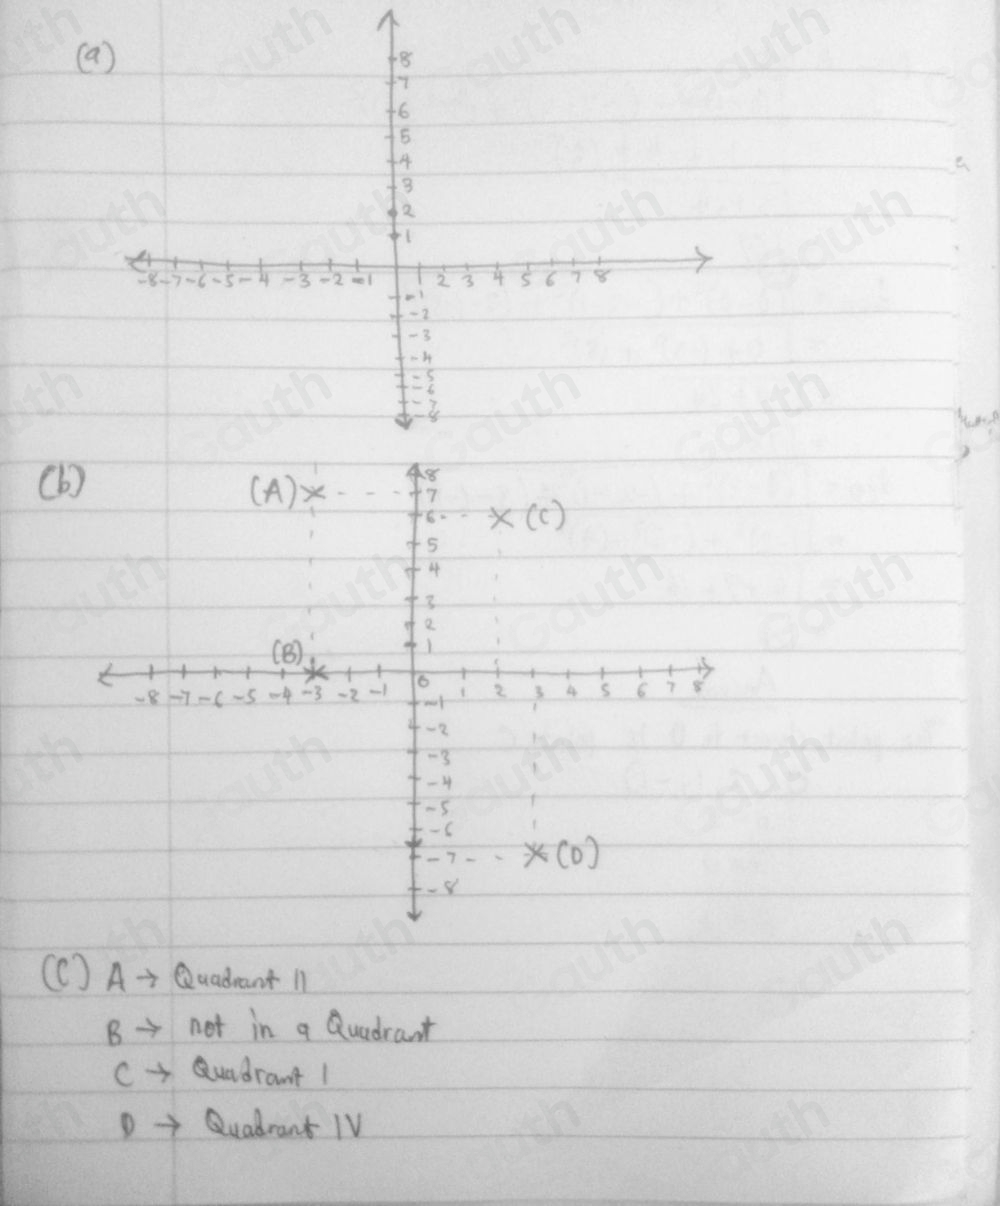 (a)
8
7
6
5
4
3
2
1
-8 -7 -6 -5 -4 -3 -2 -1 1 2 3 4 5 6 7 8
-1
-2
-3
-4
-5
-6
-7
-8
(b)
8
(A) 7
6 (C)
5
4
3
2
1
(B)
0
-8 -7 -6 -5 -4 -3 -2 -1 1 2 3 4 5 6 7 8
-1
-2
-3
-4
-5
-6
-7 (D)
-8
(C) A → Quadrant II
B → not in a Quadrant
C → Quadrant I
D → Quadrant IV
Gauth